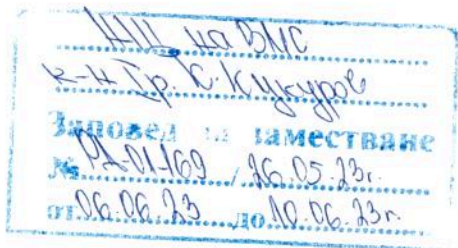 НЩ на ВМС
к-н I р. К. Кукуров
Заповед за заместване
№ РД-01-169 / 26.05.23г.
от 06.06.23 до 10.06.23г.